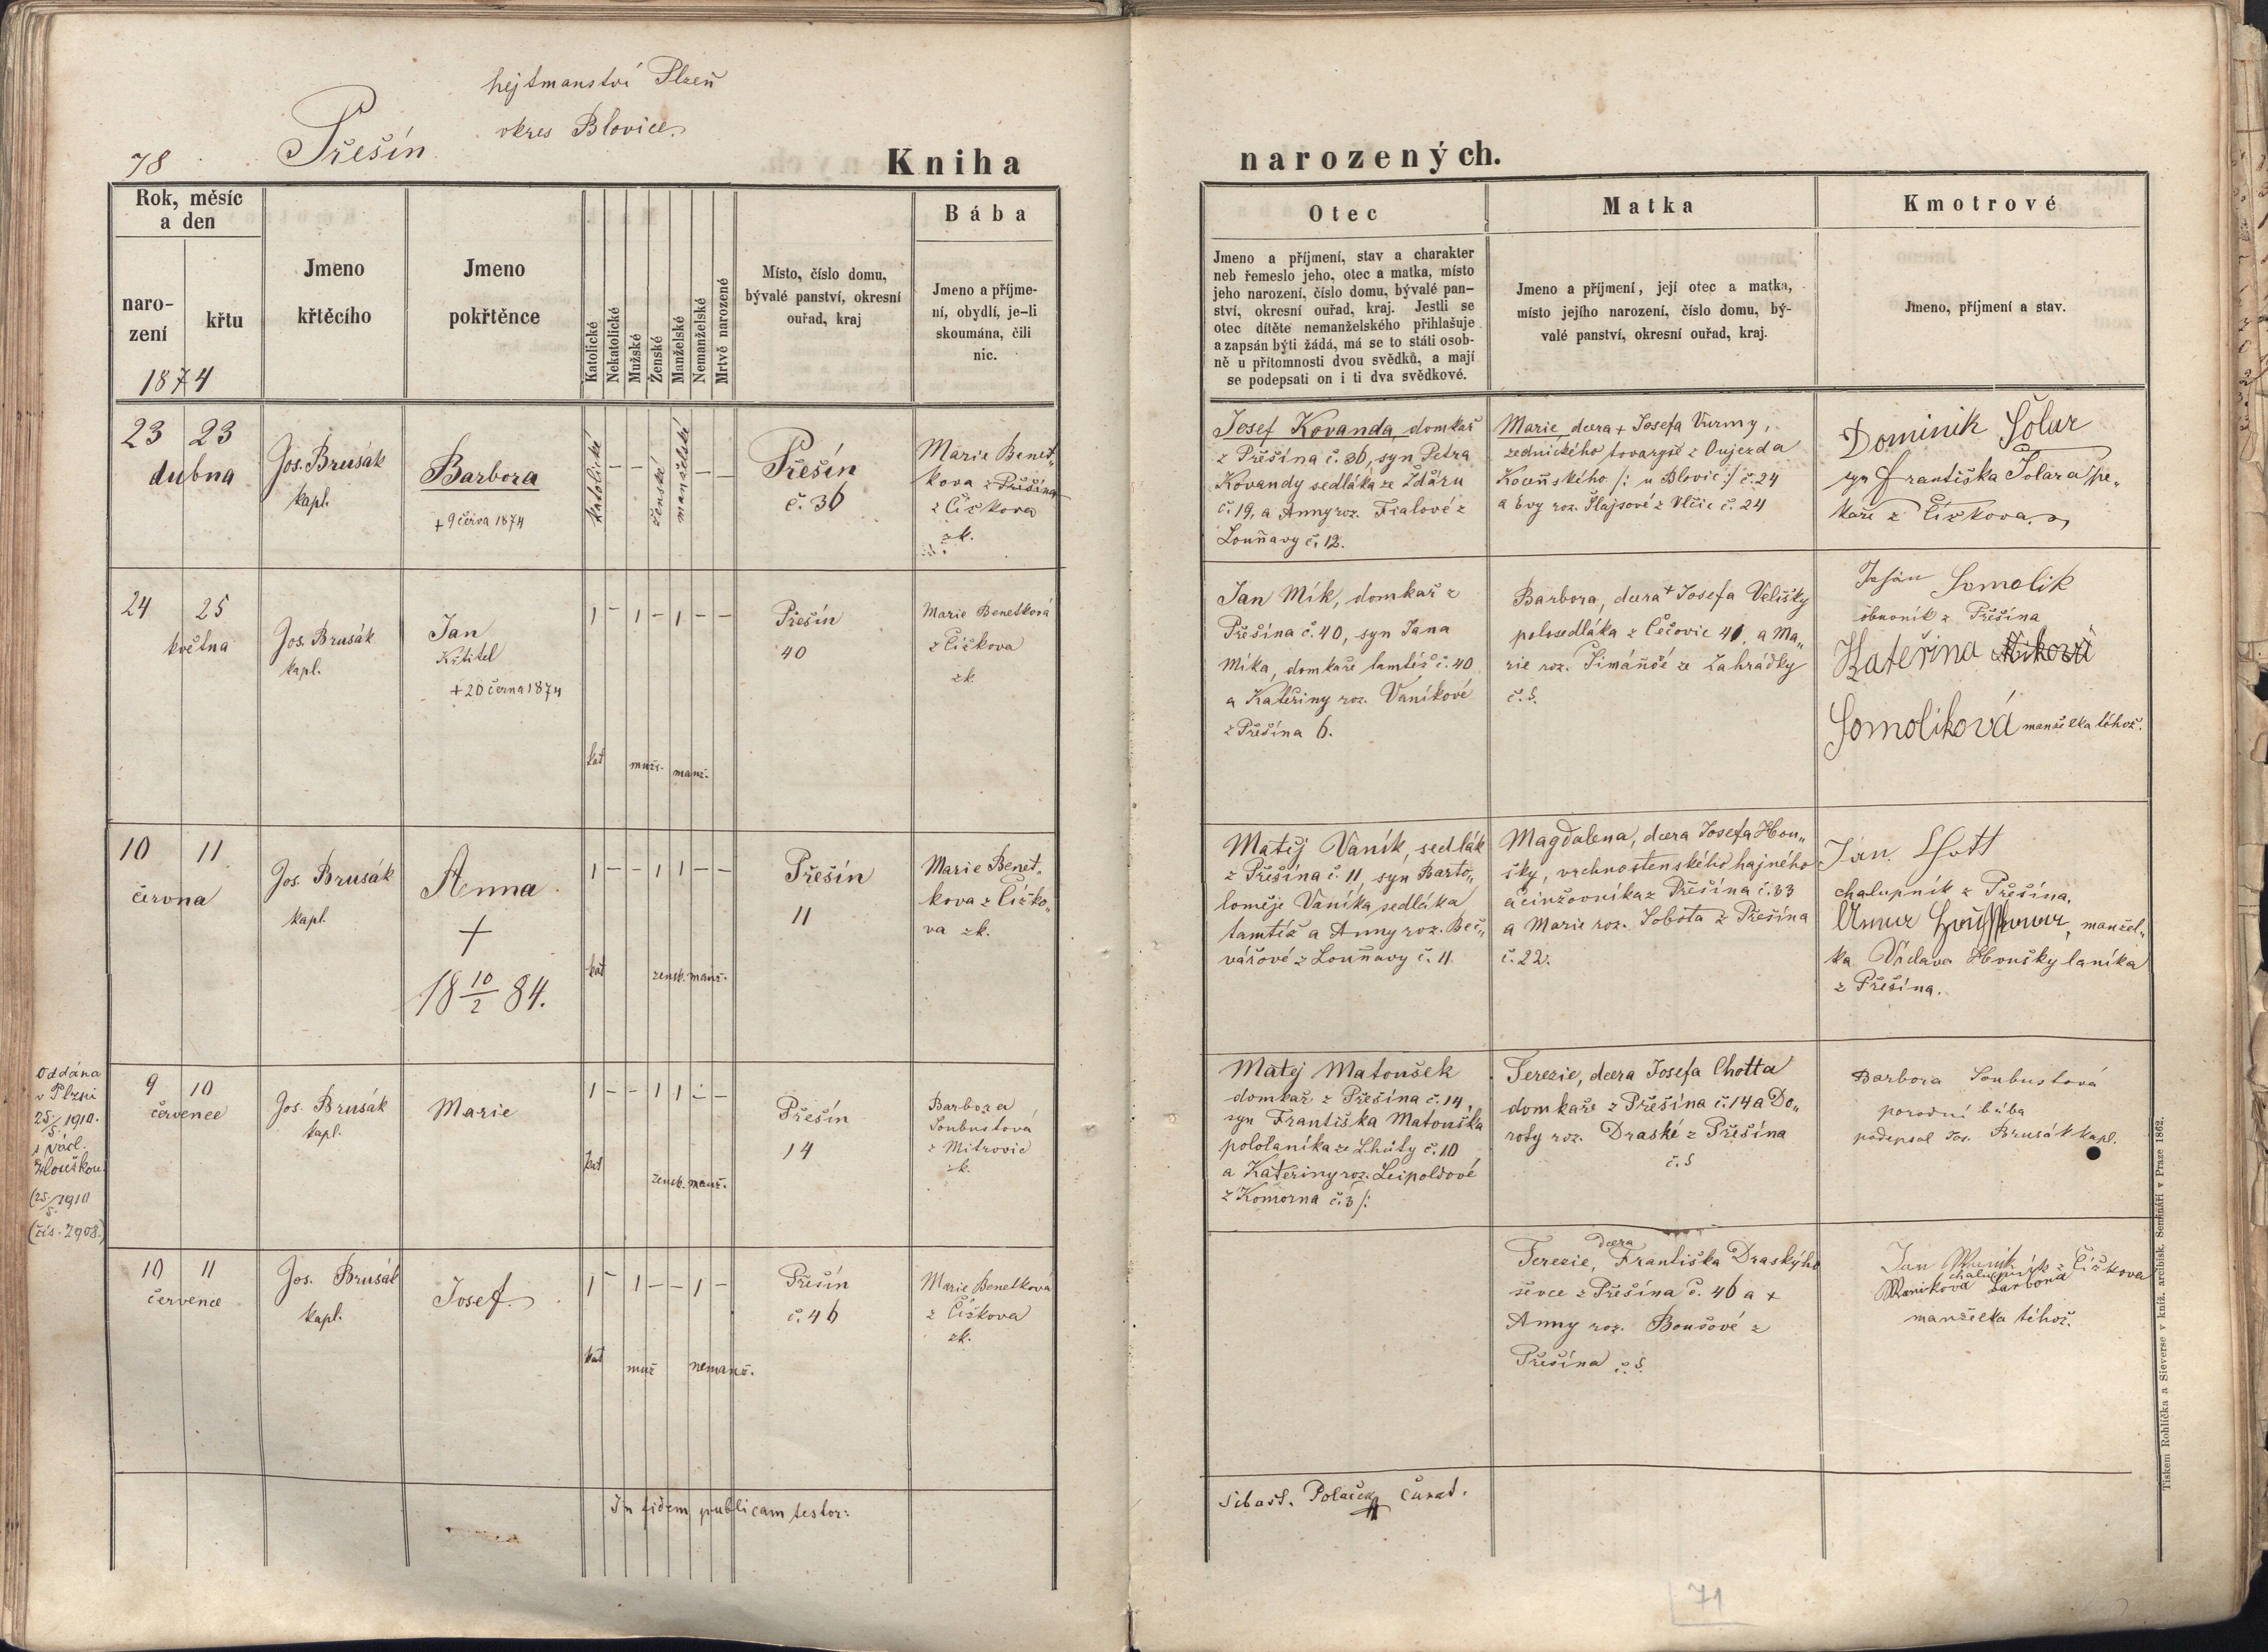 hejtmanství Plzeň
okres Blovice
Přešín
78
Kniha
Rok, měsíc
a den
naro-
zení
křtu
1874
Jmeno
křtěcího
Jmeno
pokřtěnce
Katolické
Nekatolické
Mužské
Ženské
Manželské
Nemanželské
Mrtvě narozené
Místo, číslo domu,
bývalé panství, okresní
ouřad, kraj
Bába
Jmeno a příjme-
ní, obydlí, je-li
skoumána, čili
nic.
23 23
dubna
Jos. Brusák
kapl.
Barbora
+ 9 červa 1874
katolické
ženské
manželské
Přešín
č. 36
Marie Benet„
kova z Přešína
z Čížkova
zk.
24 25
května
Jos. Brusák
kapl.
Jan
Křtitel
+ 20 června 1874
1 – 1 – 1 – –
kat mužs. manž.
Přešín
40
Marie Benetková
z Čížkova
zk.
10 11
června
Jos. Brusák
kapl.
Anna
+
18 10/2 84.
1 – – 1 1 – –
kat žensk. manž.
Přešín
11
Marie Benet„
kova z Čížko„
va zk.
Oddána
v Plzni
25/5 1910.
s Václ.
Houškou
(25/5 1910
(čís. 2908.)
9 10
července
Jos. Brusák
kapl.
Marie
1 – – 1 1 – –
kat žensk. manž.
Přešín
14
Barbora
Soubustová
z Mitrovic
zk.
10 11
července
Jos. Brusák
kapl.
Josef.
1 – 1 – – 1 –
kat muž nemanž.
Přešín
č. 46
Marie Benetková
z Čížkova
zk.
In fidem publicam testor:
narozených.
Otec
Jmeno a příjmení, stav a charakter
neb řemeslo jeho, otec a matka, místo
jeho narození, číslo domu, bývalé pan-
ství, okresní ouřad, kraj. Jestli se
otec dítěte nemanželského přihlašuje
a zapsán býti žádá, má se to státi osob-
ně u přítomnosti dvou svědků, a mají
se podepsati on i ti dva svědkové.
Matka
Jmeno a příjmení, její otec a matka,
místo jejího narození, číslo domu, bý-
valé panství, okresní ouřad, kraj.
Kmotrové
Jmeno, příjmení a stav.
Josef Kovanda, domkař
z Přešína č. 36, syn Petra
Kovandy sedláka ze Ždáru
č. 19, a Anny roz. Fialové z
Louňavy č. 12.
Marie, dcera + Josefa Vurmy,
zednického tovaryše z Oujezda
Koceňského /: u Blovic :/ č. 24
a Evy roz. Šlajsové z Vlčic č. 24
Dominik Šolar
syn Františka Šolara pe„
kaře z Čížkova.
Jan Mík, domkař z
Přešína č. 40, syn Jana
Míka, domkaře tamtéž č. 40
a Kateřiny roz. Vaníkové
z Přešína 6.
Barbora, dcera + Josefa Velíšky
polosedláka z Čečovic 41, a Ma„
rie roz. Šimáňdé ze Zahrádky
č. 5.
Somolik
obuvník z Přešína
Kateřina Mikova
Somoliková manželka téhož.
Matěj Vaník, sedlák
z Přešína č. 11, syn Barto„
loměje Vaníka sedláka
tamtéž a Anny roz. Beč„
vářové z Louňavy č. 11.
Magdalena, dcera Josefa Hou„
šky, vrchnostenského hajného
a činžovníka z Přešína č. 33
a Marie roz. Sobota z Přešína
č. 22.
Jan Chott
chalupník z Přešína,
Anna, manžel„
ka Václava Houšky laníka
z Přešína.
Matěj Matoušek
domkař z Přešína č. 14,
syn Františka Matouška
pololaníka ze Lhůty č. 10
a Kateřiny roz. Leipoldové
z Komorna č. 3 /:
Terezie, dcera Josefa Chotta
domkaře z Přešína č. 14 a Do„
roty roz. Draské z Přešína
č. 5
Barbora Soubustová
porodní bába
podepsal Jos. Brusák kapl.
Terezie, dcera Františka Draskýho
ševce z Přešína č. 46 a +
Anny roz. Boušové z
Přešína č. 5.
Jan
chalupník z Čížkova
Barbora
manželka téhož.
Sebast. Polaček Curat.
Tiskem Rohlíčka a Sieverse v kníž. arcibisk. Semináři v Praze 1862.
71